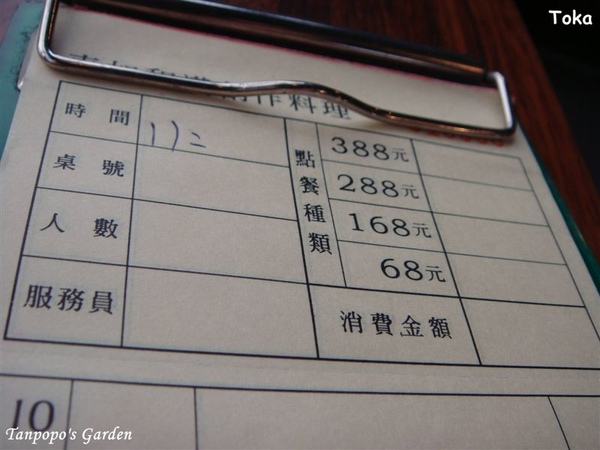 Toka
創作料理
時間
桌號
人數
服務員
點餐種類
388元
288元
168元
68元
消費金額
10
Tanpopo's Garden